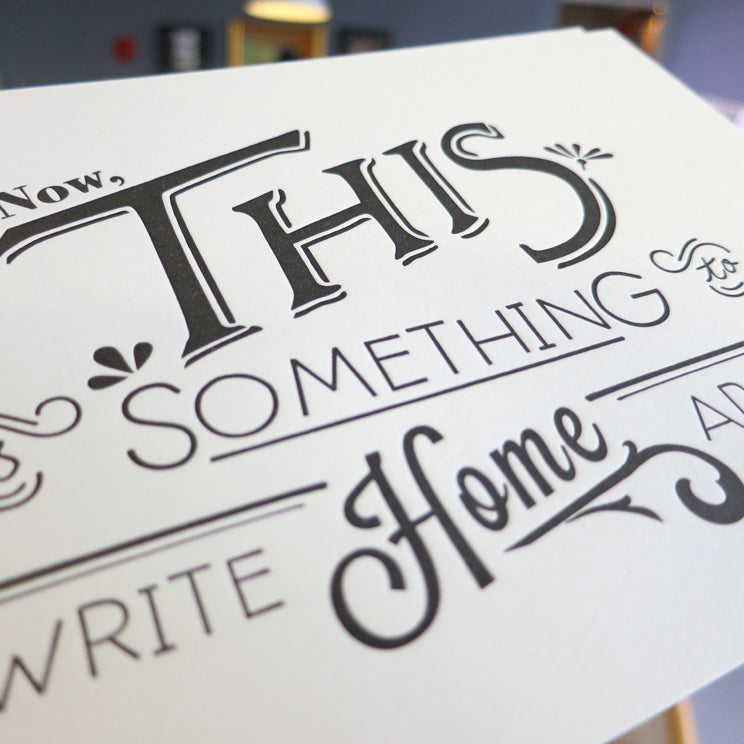 Now,
THIS
SOMETHING to
WRITE Home